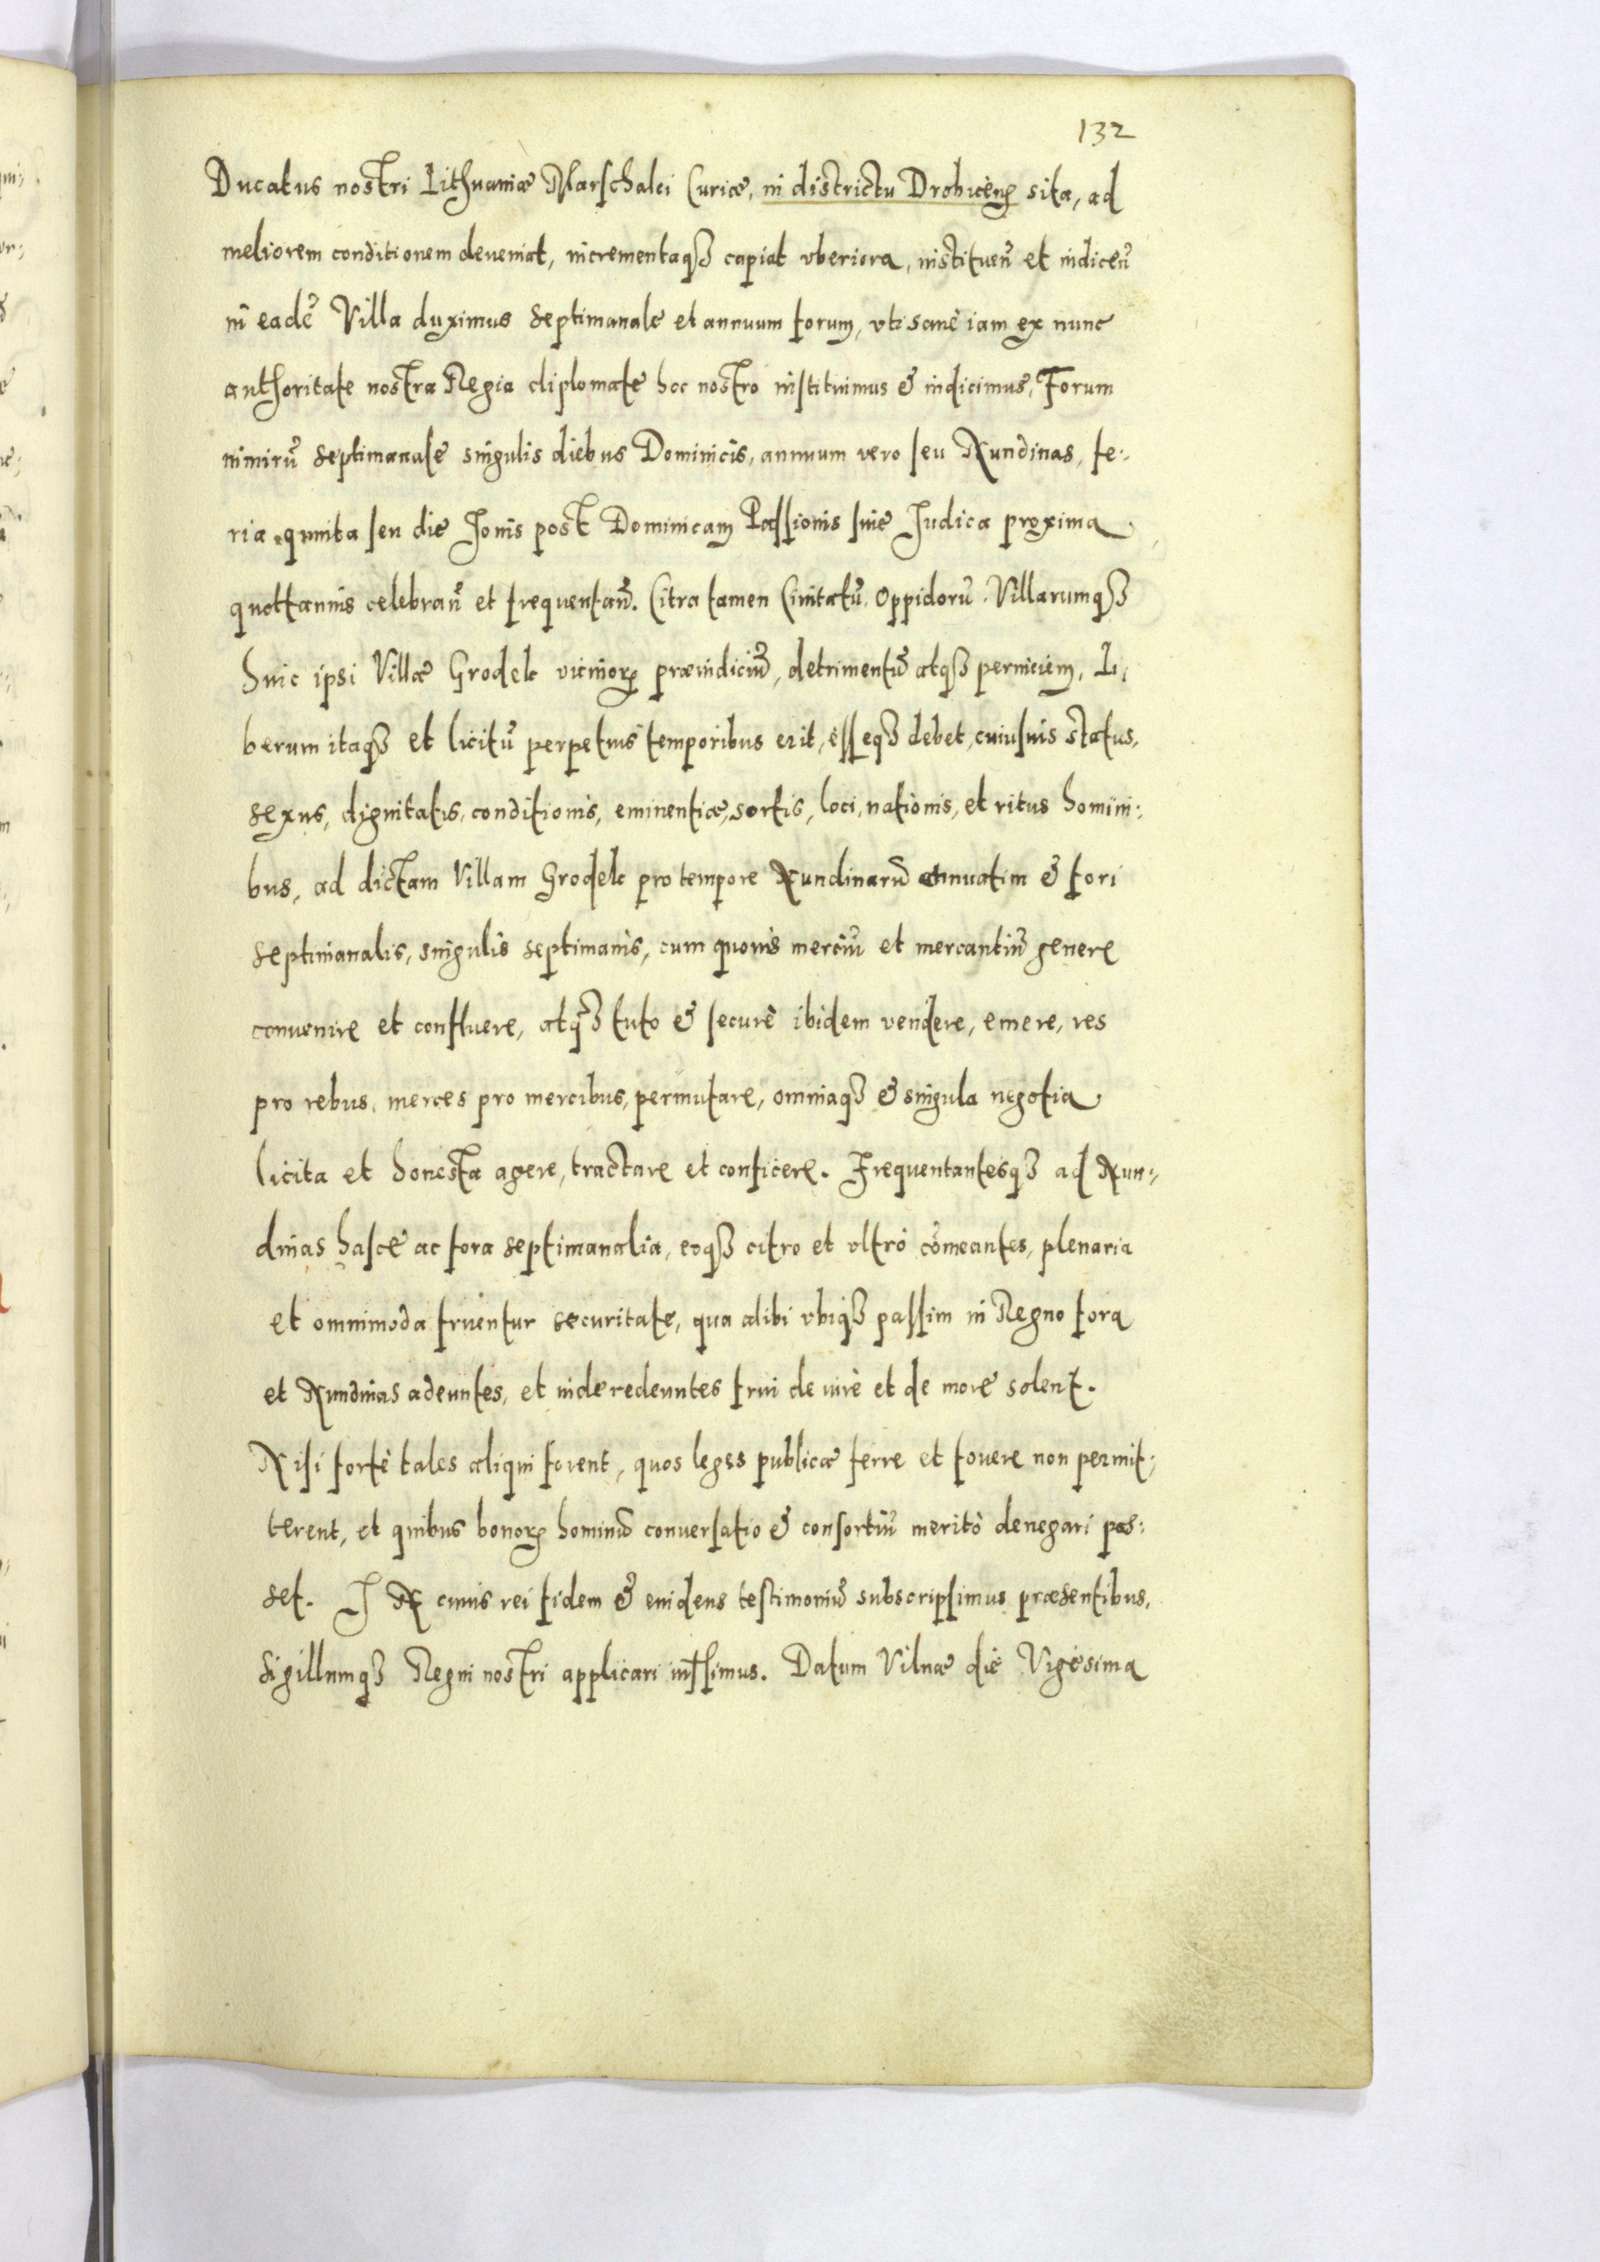 132
Ducatus nostri Lithuaniæ Marschalci Curiæ, in districtu Drohiceñ sita, ad
meliorem conditionem deueniat, incrementaq₃ capiat vberiora, instituen̄ et indicen̄
in eadē Villa duximus septimanale et annuum forum, vti sanè iam ex nunc
authoritate nostra Regia diplomate hoc nostro instituimus & indicimus, Forum
nimirū septimanale singulis diebus Dominicis, annuum vero seu Nundinas, fe:
ria quinta seu die Jouis post Dominicam Passionis siue Judica proxima
quottannis celebran̄ et frequentan̄. Citra tamen Ciuitatū, Oppidorū, Villarumq₃
huic ipsi Villæ Grodek vicinorꝝ præiudiciū, detrimentū atq₃ perniciem, Li,
berum itaq₃ et licitū perpetuis temporibus erit, esseq₃ debet, cuiusuis status,
sexus, dignitatis, conditionis, eminentiæ, sortis, loci, nationis, et ritus homini:
bus, ad dictam Villam Grodek pro tempore Nundinarū annuatim & fori
septimanalis, singulis septimanis, cum quouis merciū et mercantiū genere
conuenire et confluere, atq₃ tuto & securè ibidem vendere, emere, res
pro rebus, merces pro mercibus, permutare, omniaq₃ & singula negotia
licita et honesta agere, tractare et conficere. Frequentantesq₃ ad Nun:
dinas hasce ac fora septimanalia, eoq₃ citro et vltrò cōmeantes, plenaria
et omnimoda fruentur securitate, qua alibi vbiq₃ passim in Regno fora
et Nundinas adeuntes, et inde redeuntes frui de iure et de more solent.
Nisi fortè tales aliqui forent, quos leges publicæ ferre et fouere non permit:
terent, et quibus bonorꝝ hominū conuersatio & consortiū meritò denegari pos:
set. IN cuius rei fidem & euidens testimoniū subscripsimus præsentibus,
sigillumq₃ Regni nostri applicari iussimus. Datum Vilnæ die Vigesima